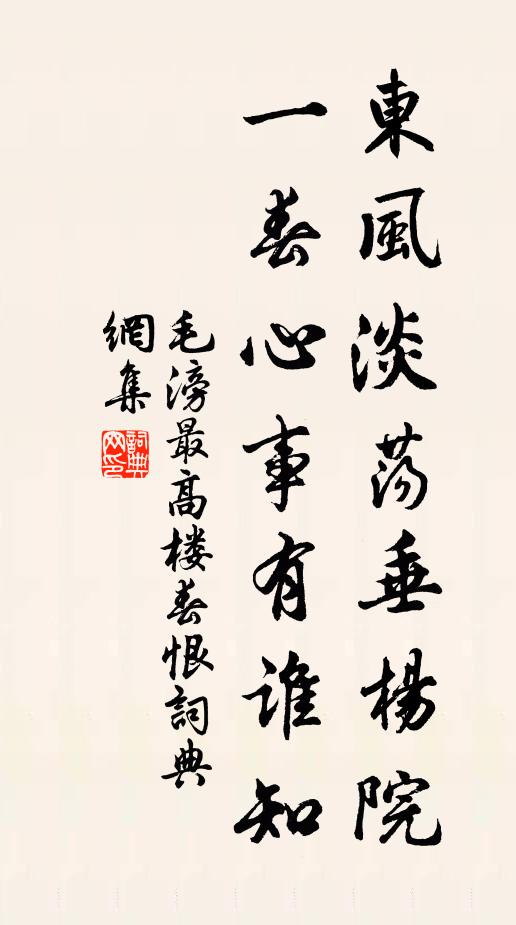 東風淡蕩垂楊院
一春心事有誰知
毛滂最高楼春恨詞典
網集
詞典网印